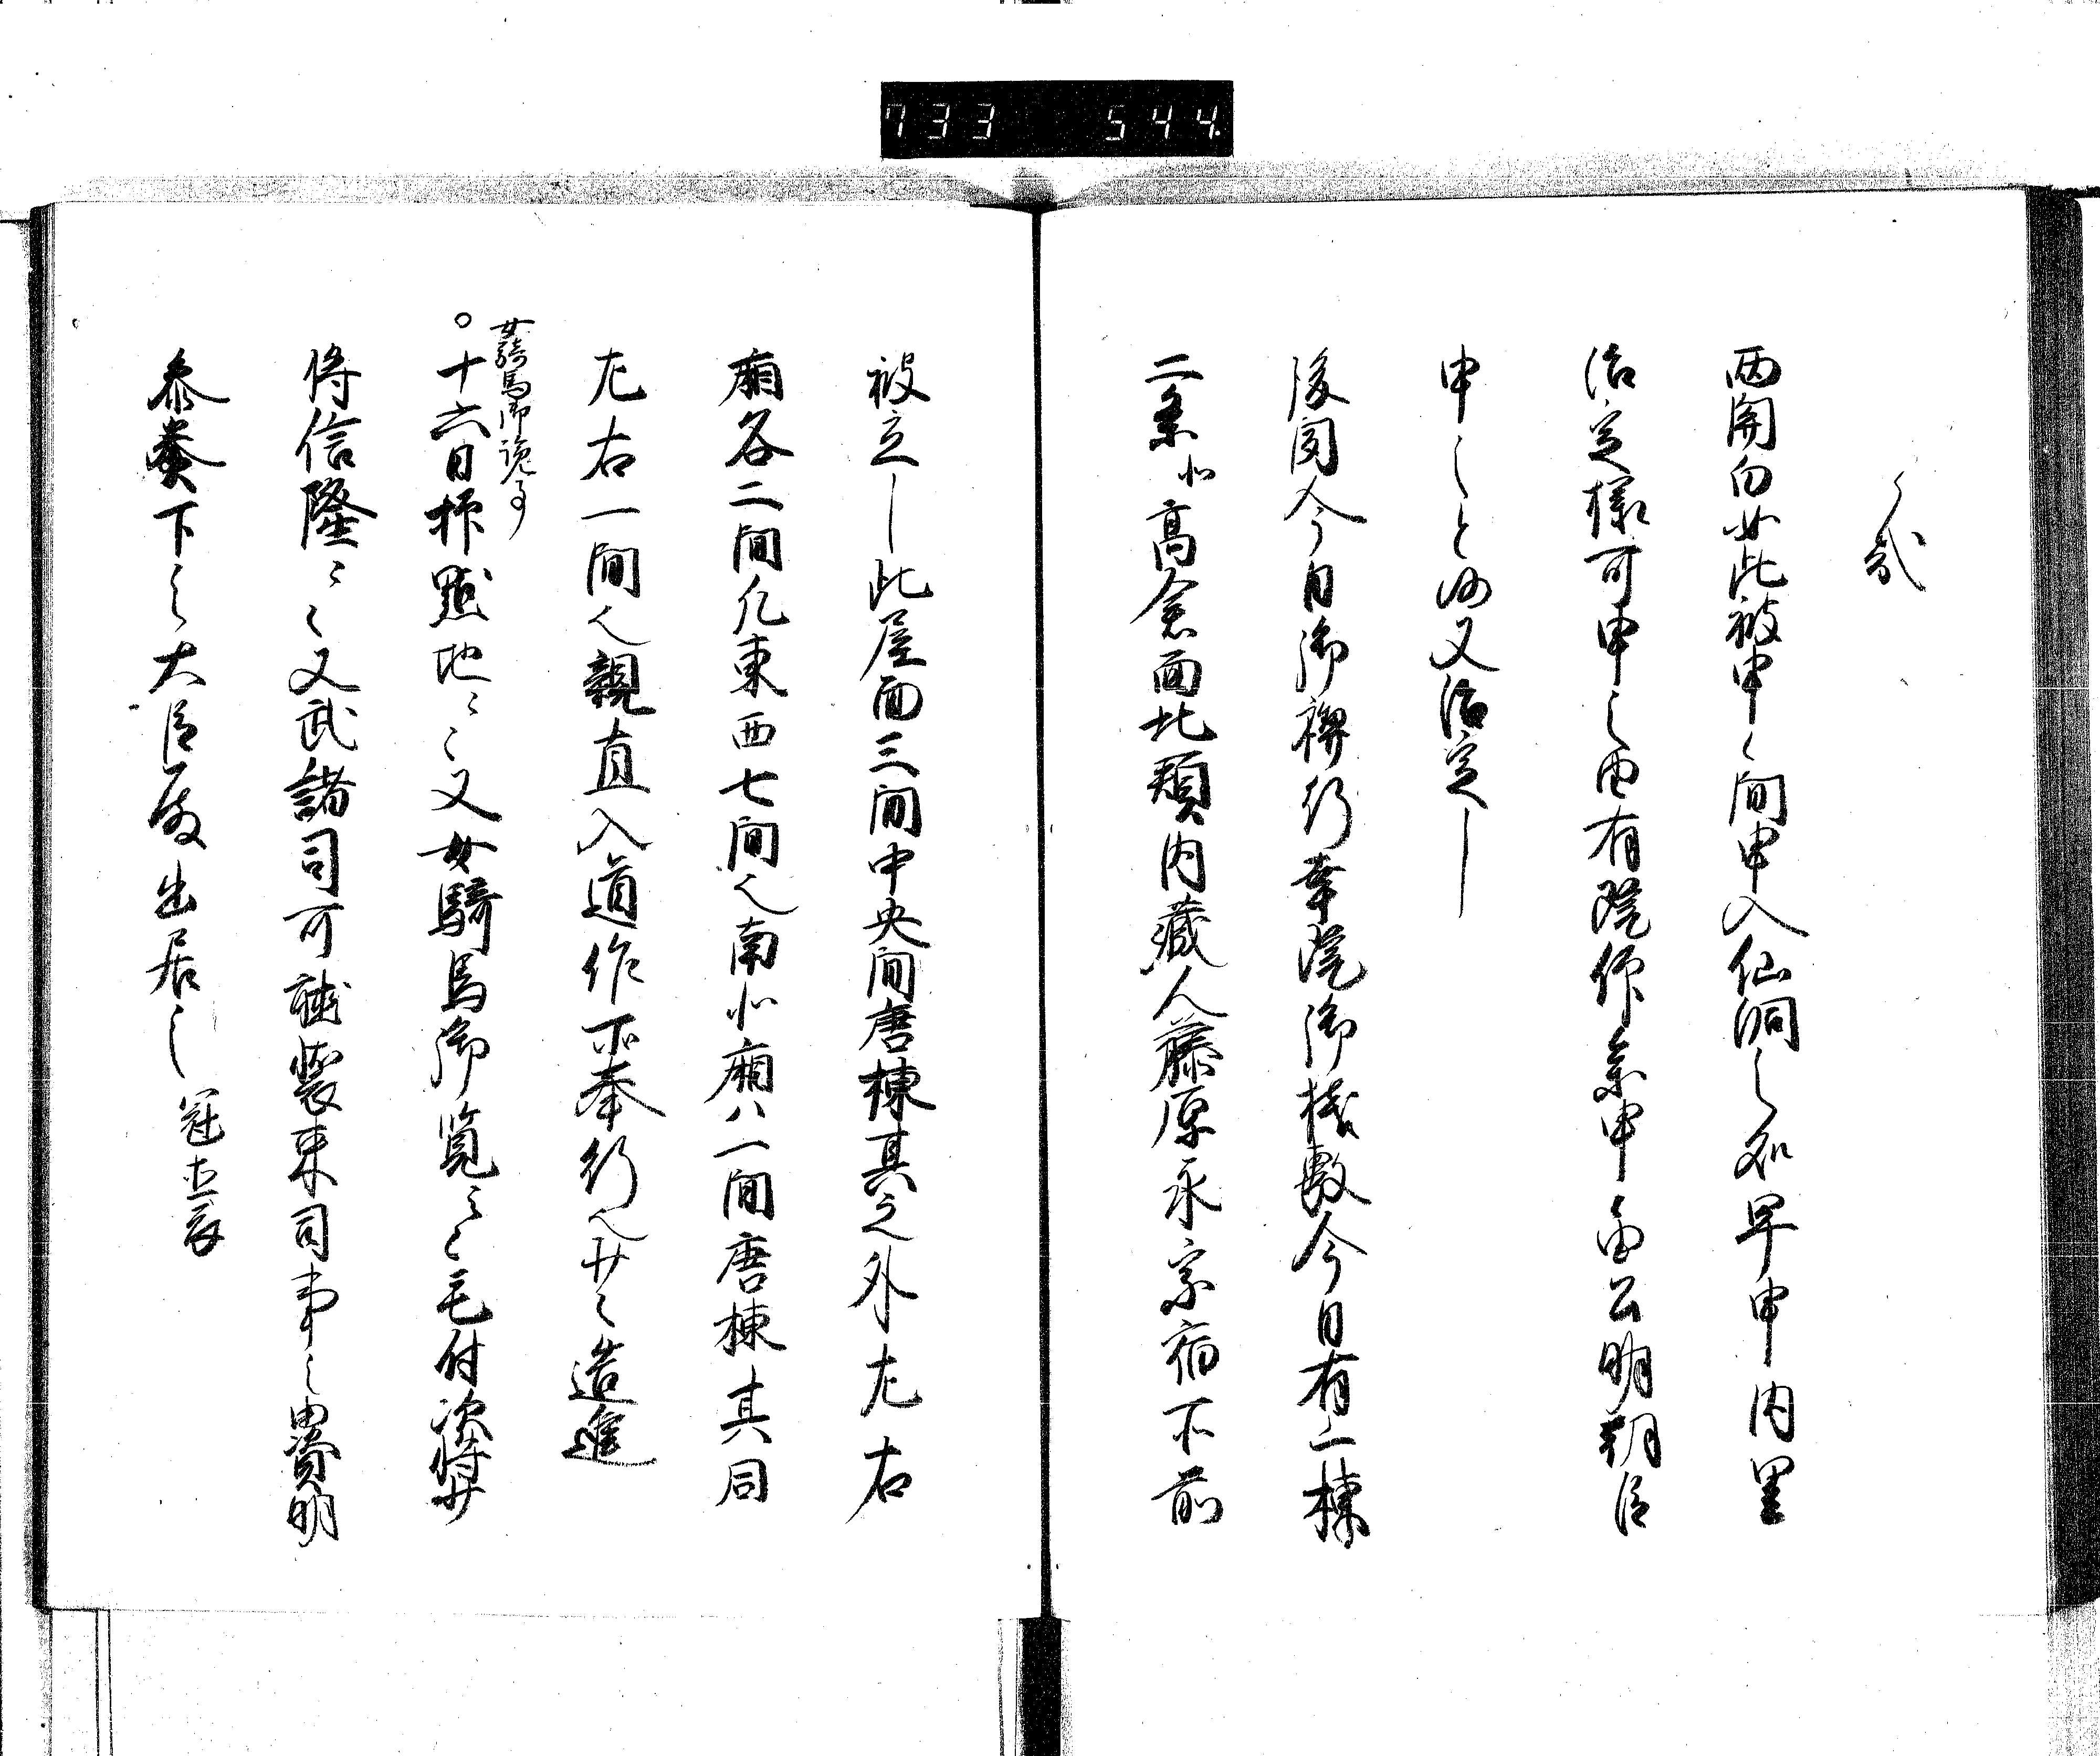 733 544.
之哉
両関白如此被申之間申入仙洞之処早申内里
治定様可申之由有院仰参申之由公明朝臣
申之と如又治定之
後聞今日御禊行幸院御桟敷今日有一棟
二条北高倉面北頬内蔵人藤原永宗宿所前
被立之此屋面三間中央間唐棟其之外左右
廂各二間凡東西七間也南北廂八一間唐棟其同
左右一間也親直入道作所奉行也廿々造進
女騎馬御覧事
○十六日抑点地云々又女騎馬御覧云々毛付次将廿
将信隆云々又武諸司可補装束司事之由資明
参奏下之大臣殿出居之冠直衣